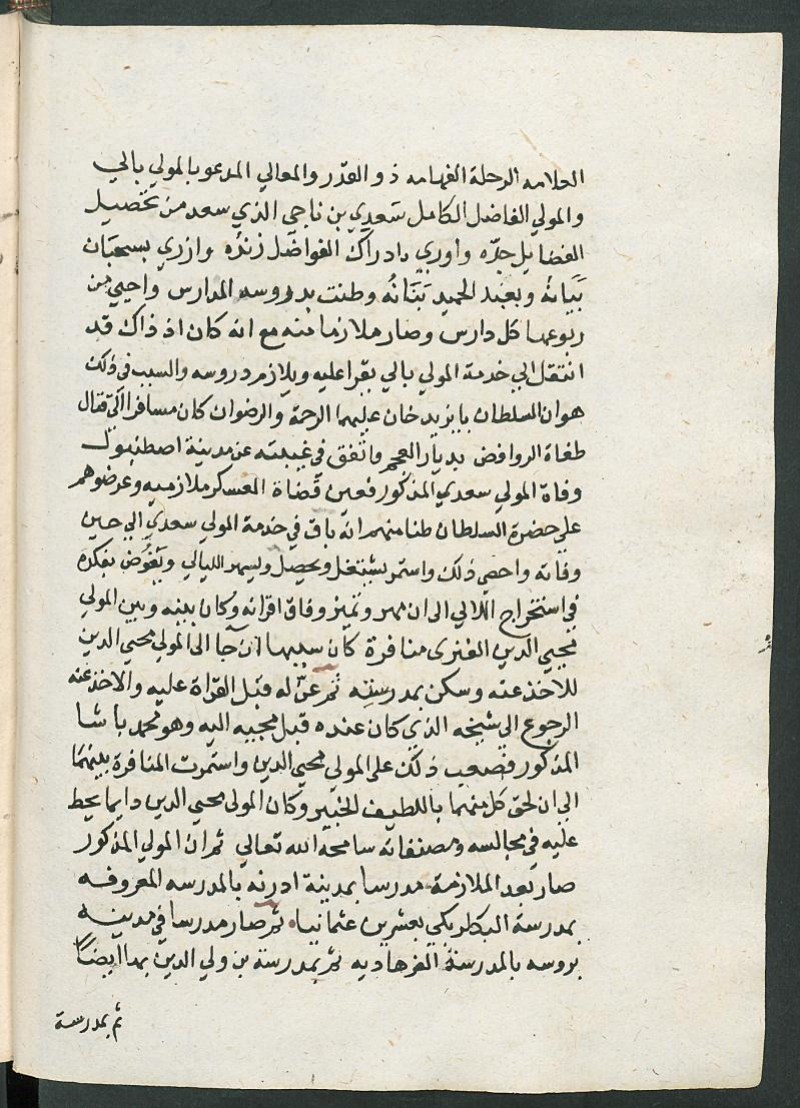 العلامه الرحلة الفهامه ذو القدر والمعالي المدعو بالمولي بالي
والمولي الفاضل الكامل سَعدي بن ناجي الذي سعد من تحصيل
الفضايل جدّه واوري بادراك الفواضل زنده وازري بسحبَان
بَيَانهُ وبعَبد الحميد بَنَانُه وطنت بدروسه المدارس واحيي من
ربوعها كل دارس وصار ملازما منه مع انه كان اذ ذاك قد
انتقل الي خدمة المولي بالي يقرا عليه ويلازم دروسه والسبب في ذلك
هو ان السلطان بايزيد خان عليهما الرحمة والرضوان كان مسافرا الي قتال
طغاة الروافض بديار العجم واتفق في غيبته عن مدينة اصطنبول
وفاة المولي سعدي المذكور فعين قضاة العسكر ملازميه وعرضوهم
علي حضرة السلطان ظنا منهم انه باق في خدمة المولي سعدي الي حين
وفاته واحصي ذلك واستمر يشتغل ويحصل ويسهر الليالي ويَغُوض بفكره
في استخراج اللالي الي ان مهر وتميز وفاق اقرانه وكان بينه وبين المولي
محيي الدين الفنري منافرة كان سببها ان جا الى المولي محيي الدين
للاخذ عنه وسكن بمدرسته ثم عنّ له قبل القراة عليه والاخذ عنه
الرجوع الي شيخه الذي كان عنده قبل مجييه اليه وهو محمد باشا
المذكور فصعب ذلك على المولي محيي الدين واستمرت المنافرة بينهمَا
الي ان لحق كل منهما باللطيف الخبير وكان المولى محيي الدين دايما يحط
عليه في مجالسه ومصنفاته سامحه الله تعالي ثم ان المولي المذكور
صار بَعد الملازمة مدرسا بمدينة ادرنه بالمدرسه المعروفه
بمدرسة البكلربكي بعشرين عثمانيا ثم صار مدرسا في مدينه
بروسه بالمدرسة الفرهاديه ثم بمدرسة بن ولي الدين بها ايضاً
ثم بمدرسة